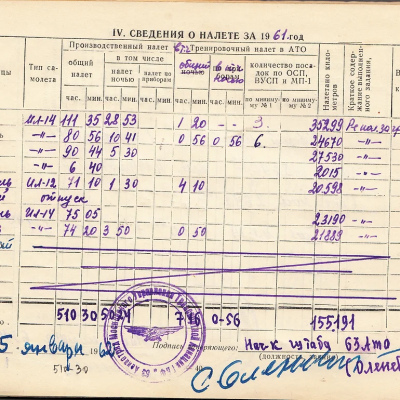 IV. СВЕДЕНИЯ О НАЛЕТЕ ЗА 1961-год
Тип самолета
Производственный налет
в т.ч. Тренировочный налет в АТО
общий налет
в том числе
налет ночью
налет по приборам
общий
ночью
количество посадок по ОСП, ВУСП и МП-1
по минимуму № 1
по минимуму № 2
Налетано километров
Краткое содержание выполненного задания,
час. мин. час. мин. час. мин. час. мин. час. мин.
Ил-14 111 35 28 53 1 20 3. 35299
-„- 80 56 10 41 0 50 0 56 6. 24670 -„-
-„- 90 44 5 30 27530 -„-
-„- 6 40 2015 -„-
Ил-12 71 10 1 30 4 10 20598 -„-
отпуск
Ил-14 75 05 23190 -„-
-„- 74 20 3 50 0 50 21889 -„-
510 30 50 24 0-56 155.191
5 января 1962
Подпись
Нач-к штаба 63 Ато
(должность,
510-30